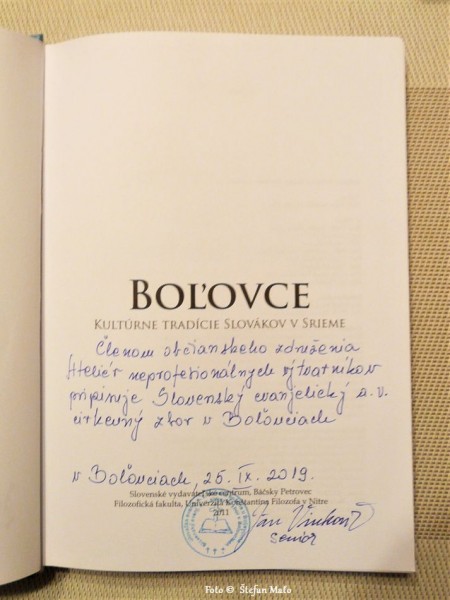 BOĽOVCE
KULTÚRNE TRADÍCIE SLOVÁKOV V SRIEME
Členom občianskeho združenia
Ateliér neprofesionálnych výtvarníkov
pripisuje Slovenský evanjelický a.v.
cirkevný zbor v Boľovciach
v Boľovciach, 26. IX. 2019.
Slovenské vydavateľské centrum, Báčsky Petrovec
Filozofická fakulta, Univerzita Konštantína Filozofa v Nitre
2011
Ján
Senior
Foto © Štefan Maťo